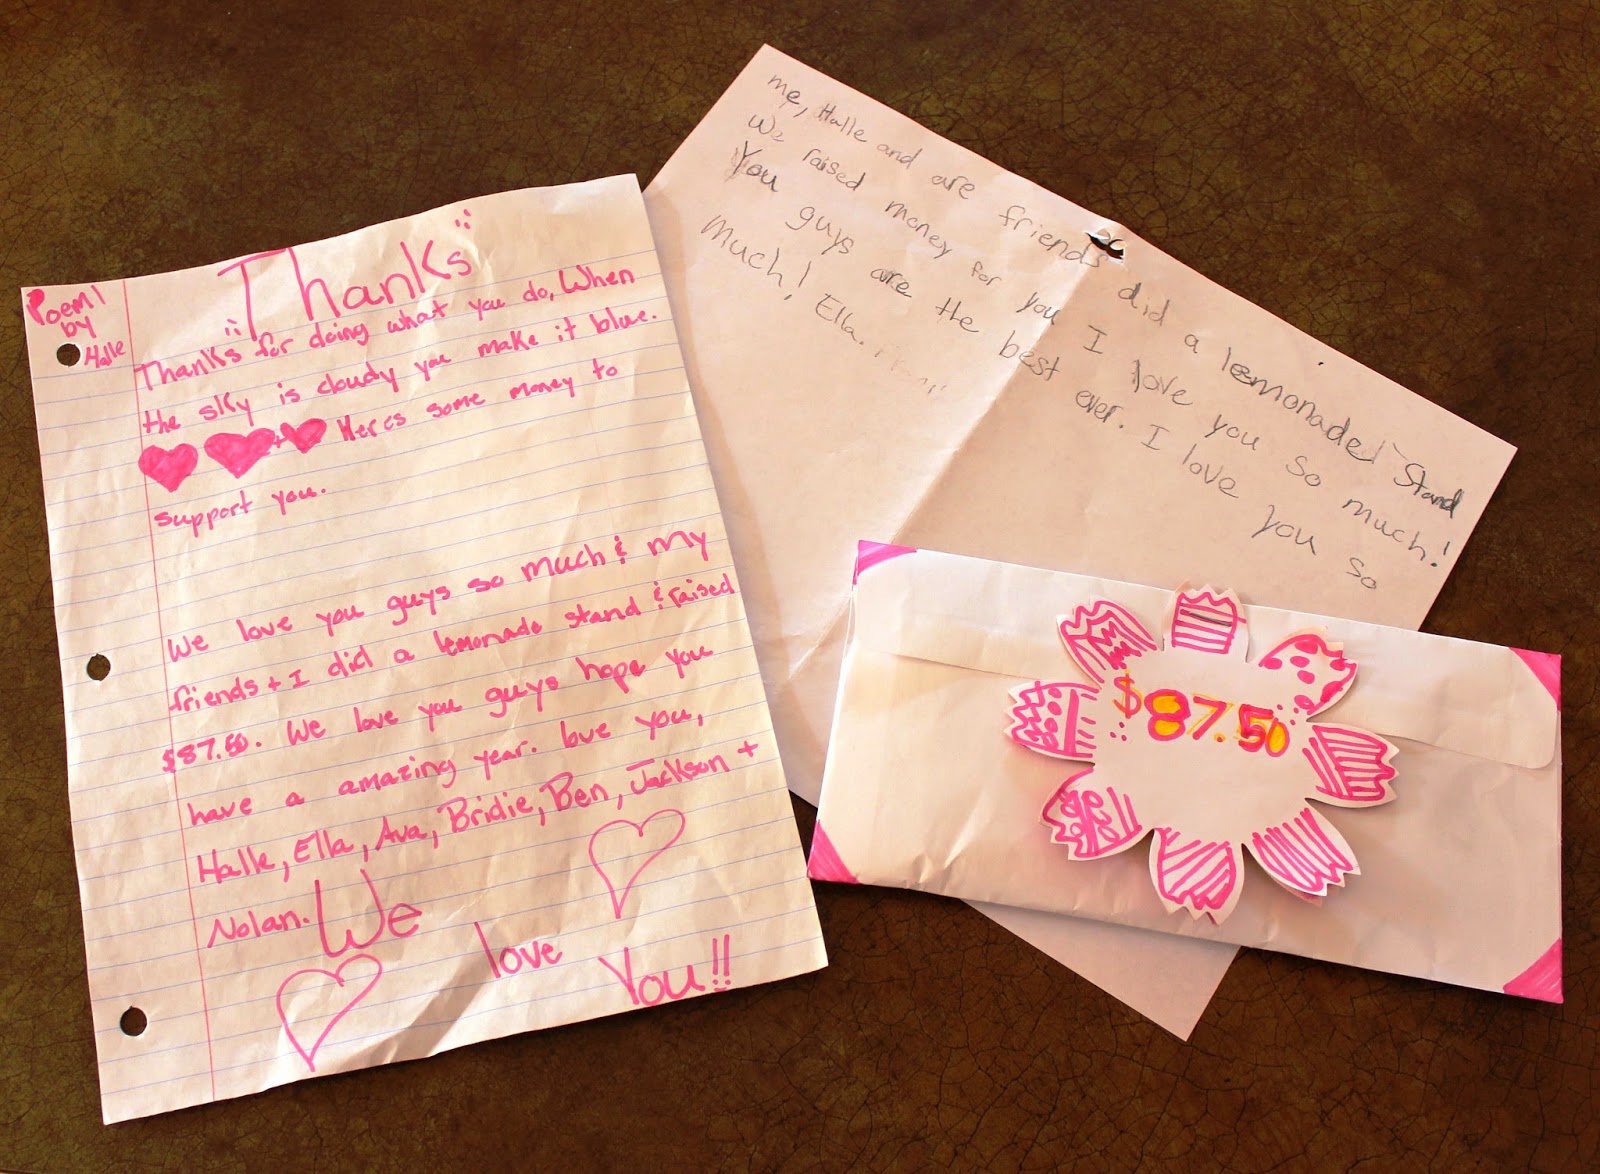 Poem!
by
Halle
Thanks
Thanks for doing what you do, When
the sky is cloudy you make it blue.
+ Heres some money to
support you.
We love you guys so much & my
friends + I did a lemonade stand & raised
$87.50. We love you guys hope you
have a amazing year. love you,
Halle, Ella, Ava, Bridie, Ben, Jackson +
Nolan.
We love You!!
me, Halle and are friends did a lemonaded stand
We raised money for you I love you so much!
You guys are the best ever. I love you so
Much! Ella.
$87.50